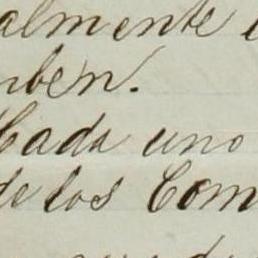 almente
nben.
Cada uno
de los Com